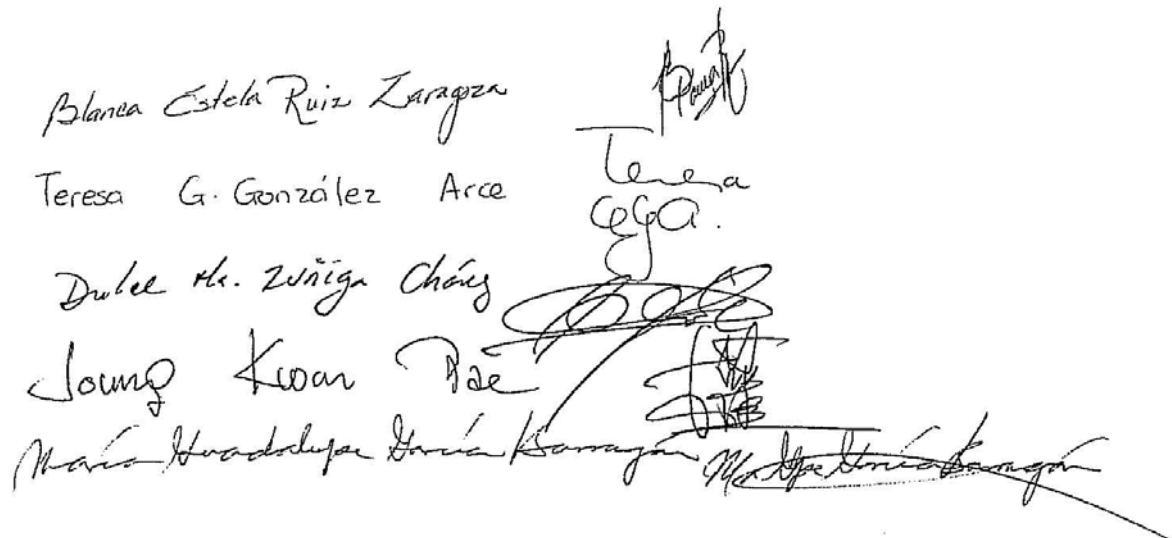 Blanca Estela Ruiz Zaragoza
Teresa G. González Arce Teresa
GGA.
Dulce Ma. Zúñiga Chávez
Joung Kwon Bae
María Guadalupe García Barragán Ma Gpe García Barragán